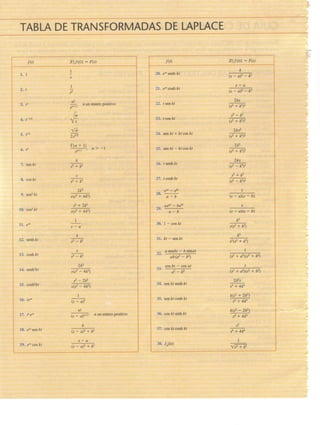 TABLA DE TRANSFORMADAS DE LAPLACE
f(t) ℒ{f(t)} = F(s)
1. 1 1/s
2. t 1/s²
3. tⁿ n!/sⁿ⁺¹ n un entero positivo
4. t^(-1/2) √(π/s)
5. t^(1/2)
6. t^α Γ(α + 1)/s^(α+1), α > −1
7. sen kt k/(s² + k²)
8. cos kt s/(s² + k²)
9. sen² kt 2k²/(s(s² + 4k²))
10. cos² kt (s² + 2k²)/(s(s² + 4k²))
11. e^(at) 1/(s − a)
12. senh kt k/(s² − k²)
13. cosh kt s/(s² − k²)
14. senh² kt 2k²/(s(s² − 4k²))
15. cosh² kt (s² − 2k²)/(s(s² − 4k²))
16. te^(at) 1/(s − a)²
17. tⁿ e^(at) n!/(s − a)ⁿ⁺¹ n un entero positivo
18. e^(at) sen kt k/((s − a)² + k²)
19. e^(at) cos kt (s − a)/((s − a)² + k²)
f(t) ℒ{f(t)} = F(s)
20. e^(at) senh kt k/((s − a)² − k²)
21. e^(at) cosh kt (s − a)/((s − a)² − k²)
22. t sen kt 2ks/(s² + k²)²
23. t cos kt (s² − k²)/(s² + k²)²
24. sen kt + kt cos kt 2ks²/(s² + k²)²
25. sen kt − kt cos kt 2k³/(s² + k²)²
26. t senh kt 2ks/(s² − k²)²
27. t cosh kt (s² + k²)/(s² − k²)²
28. (e^(at) − e^(bt))/(a − b) 1/((s − a)(s − b))
29. (ae^(at) − be^(bt))/(a − b) s/((s − a)(s − b))
30. 1 − cos kt k²/(s(s² + k²))
31. kt − sen kt k³/(s²(s² + k²))
32. (a sen bt − b sen at)/(ab(a² − b²)) 1/((s² + a²)(s² + b²))
33. (cos bt − cos at)/(a² − b²) s/((s² + a²)(s² + b²))
34. sen kt senh kt 2k²s/(s⁴ + 4k⁴)
35. sen kt cosh kt k(s² + 2k²)/(s⁴ + 4k⁴)
36. cos kt senh kt k(s² − 2k²)/(s⁴ + 4k⁴)
37. cos kt cosh kt s³/(s⁴ + 4k⁴)
38. J₀(kt) 1/√(s² + k²)